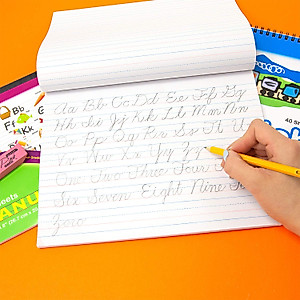 Aa Bb Cc Dd Ee Ff Gg
Hh Ii Jj Kk Ll Mm Nn
Oo Pp Qq Rr Ss Tt U
Vv Ww Xx Yy Zz
One Two Three Four
Six Seven Eight Nine T
Zero
Kk
40 S